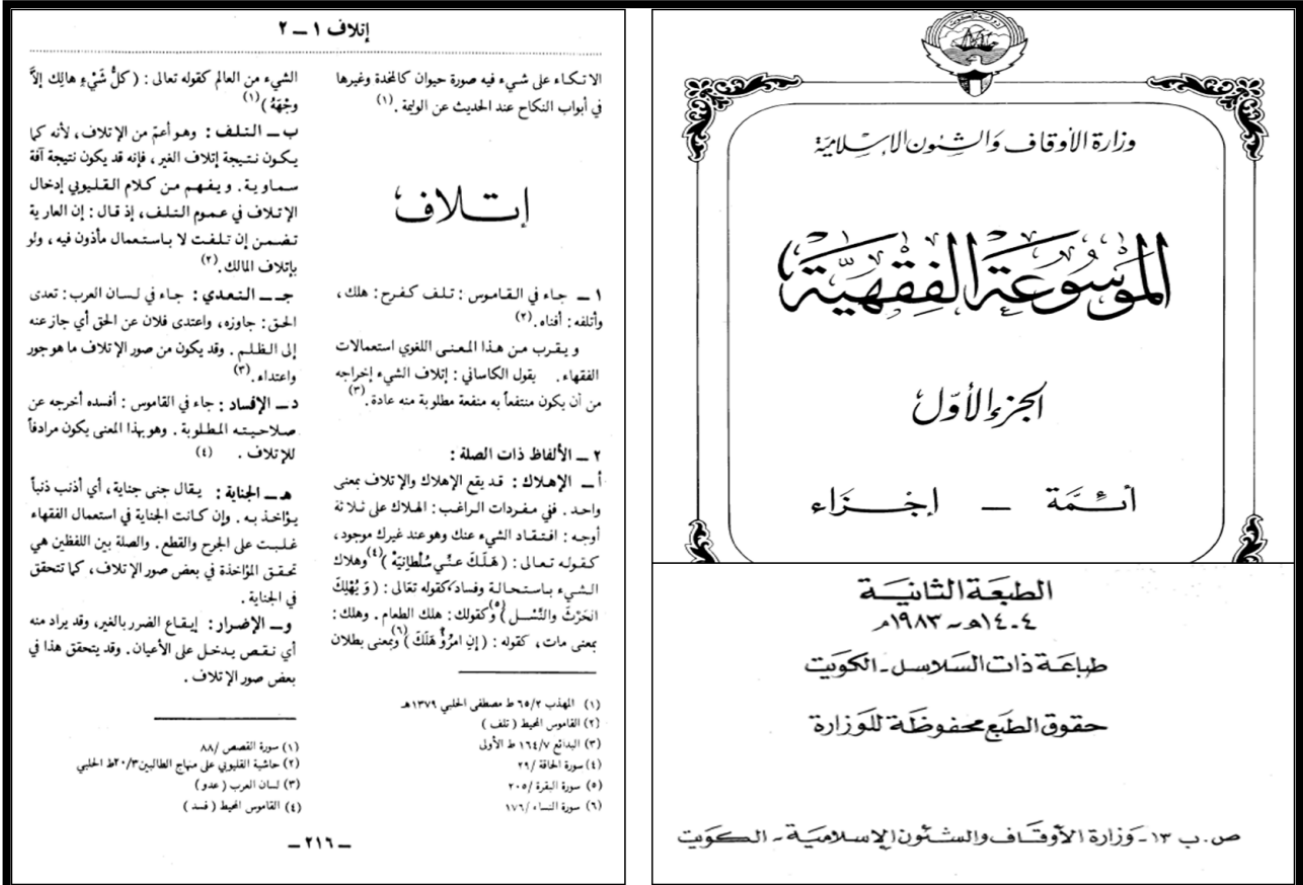 وزارة الأوقاف والشئون الإسلامية
الموسوعة الفقهية
الجزء الأول
أئمة – إجزاء
الطبعة الثانية
١٤٠٤هـ - ١٩٨٣م
طباعة ذات السلاسل - الكويت
حقوق الطبع محفوظة للوزارة
ص.ب ١٣ - وزارة الأوقاف والشئون الإسلامية - الكويت
إتلاف ١ – ٢
الاتكاء على شيء فيه صورة حيوان كالمخدة وغيرها
في أبواب النكاح عند الحديث عن الوليمة . (١)
إتلاف
١ – جاء في القاموس : تلف كفرح : هلك ،
وأتلفه : أفناه . (٢)
ويقرب من هذا المعنى اللغوي استعمالات
الفقهاء . يقول الكاساني : إتلاف الشيء إخراجه
من أن يكون منتفعاً به منفعة مطلوبة منه عادة . (٣)
٢ – الألفاظ ذات الصلة :
أ – الإهلاك : قد يقع الإهلاك والإتلاف بمعنى
واحد . ففي مفردات الراغب : الهلاك على ثلاثة
أوجه : افتقاد الشيء عنك وهو عند غيرك موجود ،
كقوله تعالى : ( هَلَكَ عَنِّي سُلْطَانِيَهْ ) (٤) وهلاك
الشيء باستحالة وفساد كقوله تعالى : ( وَيُهْلِكَ
الحَرْثَ والنَّسْل ) (٥) وكقولك : هلك الطعام . وهلك :
بمعنى مات ، كقوله : ( إِنِ امْرُؤٌ هَلَكَ ) (٦) وبمعنى بطلان
(١) المهذب ٦٥/٢ ط مصطفى الحلبي ١٣٧٩هـ
(٢) القاموس المحيط ( تلف )
(٣) البدائع ١٦٤/٧ ط الأولى
(٤) سورة الحاقة /٢٩
(٥) سورة البقرة /٢٠٥
(٦) سورة النساء /١٧٦
الشيء من العالم كقوله تعالى : ( كلُّ شَيْءٍ هالِك إلاَّ
وجْهَهُ ) (١)
ب – التلف : وهو أعمّ من الإتلاف ، لأنه كما
يكون نتيجة إتلاف الغير ، فإنه قد يكون نتيجة آفة
سماوية . ويفهم من كلام القليوبي إدخال
الإتلاف في عموم التلف ، إذ قال : إن العارية
تضمن إن تلفت لا باستعمال مأذون فيه ، ولو
بإتلاف المالك . (٢)
جـ – التعدي : جاء في لسان العرب : تعدى
الحق : جاوزه ، واعتدى فلان عن الحق أي جاز عنه
إلى الظلم . وقد يكون من صور الإتلاف ما هو جور
واعتداء . (٣)
د – الإفساد : جاء في القاموس : أفسده أخرجه عن
صلاحيته المطلوبة . وهو بهذا المعنى يكون مرادفاً
للإتلاف . (٤)
هـ – الجناية : يقال جنى جناية ، أي أذنب ذنباً
يؤاخذ به . وإن كانت الجناية في استعمال الفقهاء
غلبت على الجرح والقطع . والصلة بين اللفظين هي
تحقق المؤاخذة في بعض صور الإتلاف ، كما تتحقق
في الجناية .
و – الإضرار : إيقاع الضرر بالغير ، وقد يراد منه
أي نقص يدخل على الأعيان . وقد يتحقق هذا في
بعض صور الإتلاف .
(١) سورة القصص /٨٨
(٢) حاشية القليوبي على منهاج الطالبين ٢٠/٣ ط الحلبي
(٣) لسان العرب ( عدو )
(٤) القاموس المحيط ( فسد )
– ٢١٦ –